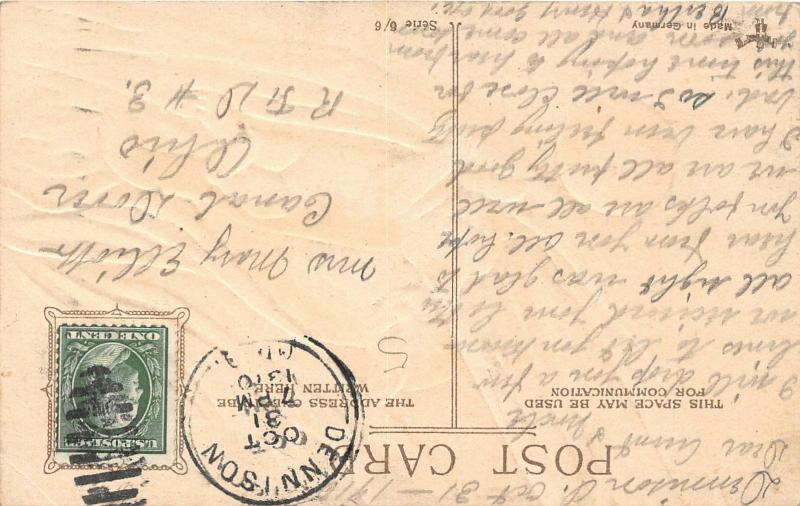 Dennison O. Oct 31 - 1910
POST CARD
THIS SPACE MAY BE USED
FOR COMMUNICATION
THE ADDRESS ONLY TO BE
WRITTEN HERE
Dear Aunt & Uncle
I will drop you a few
lines to let you know
we received your letter
all right was glad to
hear from you all. hope
you folks are all well
we are all pretty good
I have been feeling pretty
bad. so I will close for
this time hoping to hear from
soon and all come
from Bertha & Henry good bye
Mrs Mary Elliott
Canal Dover
Ohio
R F D # 3.
5
DENNISON
OCT
31
7 PM
1910
U.S. POSTAGE
ONE CENT
Serie 6/6
Made in Germany